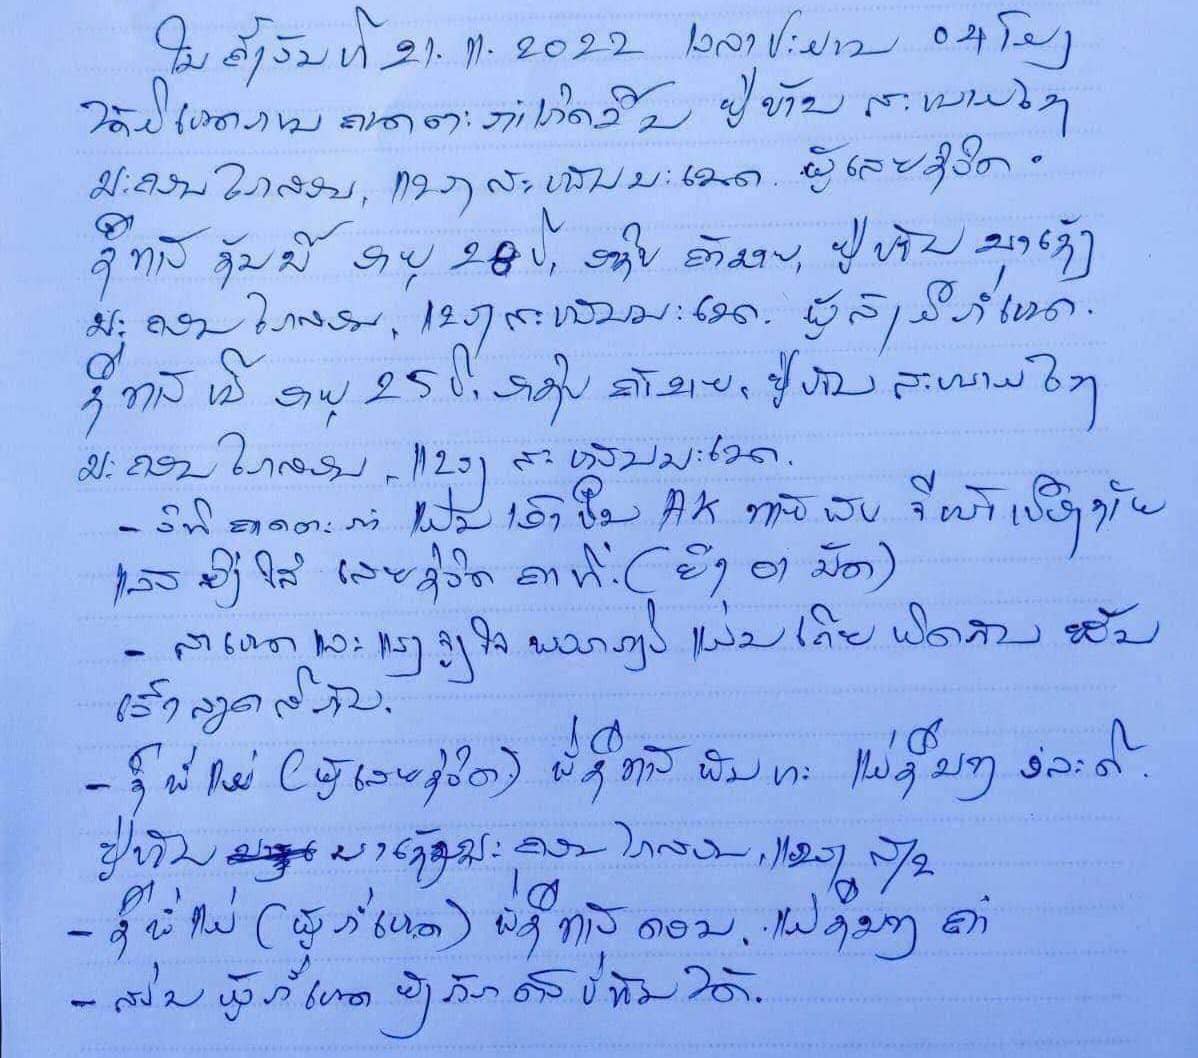 ໃນຄັ້ງວັນທີ 21.11.2022 ເວລາປະມານ 04 ໂມງ
ໄດ້ມີເຫດການ ຄາດຕະກຳເກີດຂຶ້ນ ຢູ່ບ້ານ ສະໜາມໄຊ
ນະຄອນ ໄກສອນ, ແຂວງ ສະຫວັນນະເຂດ. ຜູ້ເສຍຊີວິດ.
ຊື່ ທ້າວ ຊັນນີ້ ອາຍຸ 28 ປີ, ອາຊີບ ຄ້າຂາຍ, ຢູ່ບ້ານ ນາເຊັງ
ນະຄອນ ໄກສອນ, ແຂວງ ສະຫວັນນະເຂດ. ຜູ້ລົງມືກໍ່ເຫດ.
ຊື່ ທ້າວ ອາຍຸ 25 ປີ, ອາຊີບ ຄ້າຂາຍ, ຢູ່ບ້ານ ສະໜາມໄຊ
ນະຄອນ ໄກສອນ, ແຂວງ ສະຫວັນນະເຂດ.
- ວິທີ ຄາດຕະກຳ ແມ່ນ ເອົາປືນ AK ຈີ່ໜ້າເບື້ອງ
ແລ້ວ ຍິງໃສ່ ເສຍຊີວິດ ຄາທີ່. (ຍິງ 01 ນັດ)
- ສາເຫດ ແລະ ແຮງຈູງໃຈ ແມ່ນເຄີຍ ຜິດກັນ
- ຊື່ ພໍ່ແມ່ (ຜູ້ເສຍຊີວິດ) ພໍ່ຊື່ ທ້າວ ພັນທະ ແມ່ຊື່ ນາງ
ຢູ່ບ້ານ ນາເຊັງ ນະຄອນ ໄກສອນ, ແຂວງ ສ/ຂ
- ຊື່ ພໍ່ແມ່ (ຜູ້ກໍ່ເຫດ) ພໍ່ຊື່ ທ້າວ ຄອນ, ແມ່ຊື່ ນາງ ຄຳ
- ສ່ວນ ຜູ້ກໍ່ເຫດ ຍັງກັກຕົວ ບໍ່ທັນໄດ້.